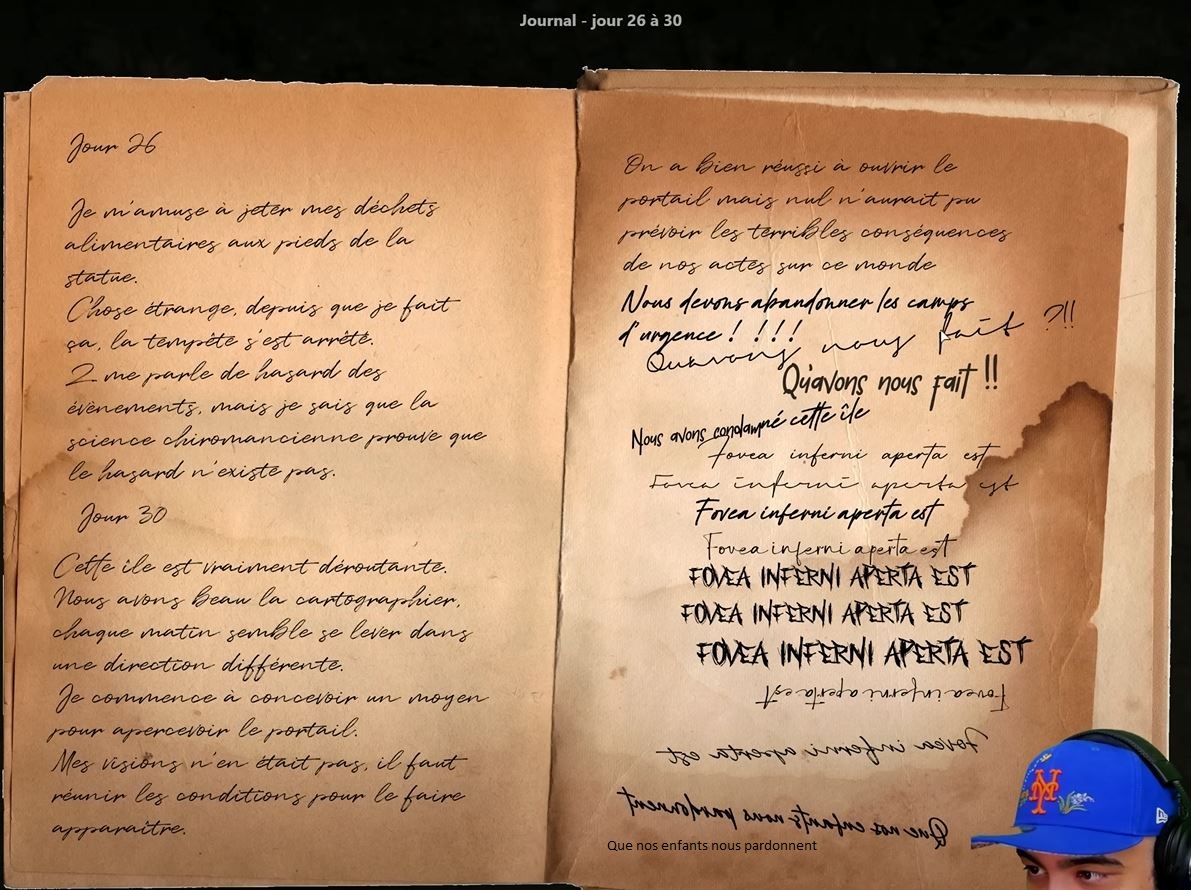 Journal - jour 26 à 30
Jour 26
Je m'amuse à jeter mes déchets
alimentaires aux pieds de la
statue.
Chose étrange, depuis que je fait
ça, la tempête s'est arrêté.
2 me parle de hasard des
évènements, mais je sais que la
science chiromancienne prouve que
le hasard n'existe pas.
Jour 30
Cette ile est vraiment déroutante.
Nous avons beau la cartographier,
chaque matin semble se lever dans
une direction différente.
Je commence à concevoir un moyen
pour apercevoir le portail.
Mes visions n'en était pas, il faut
réunir les conditions pour le faire
apparaitre.
On a bien réussi à ouvrir le
portail mais nul n'aurait pu
prévoir les terribles conséquences
de nos actes sur ce monde
Nous devons abandonner les camps
d'urgence ! !!!
Quavons nous fait ?!!
Qu'avons nous fait !!
Nous avons condamné cette île
Fovea inferni aperta est
Fovea inferni aperta est
Fovea inferni aperta est
Fovea inferni aperta est
FOVEA INFERNI APERTA EST
FOVEA INFERNI APERTA EST
FOVEA INFERNI APERTA EST
Fovea inferni aperta est
Fovea inferni aperta est
Que nos enfants nous pardonnent
Que nos enfants nous pardonnent